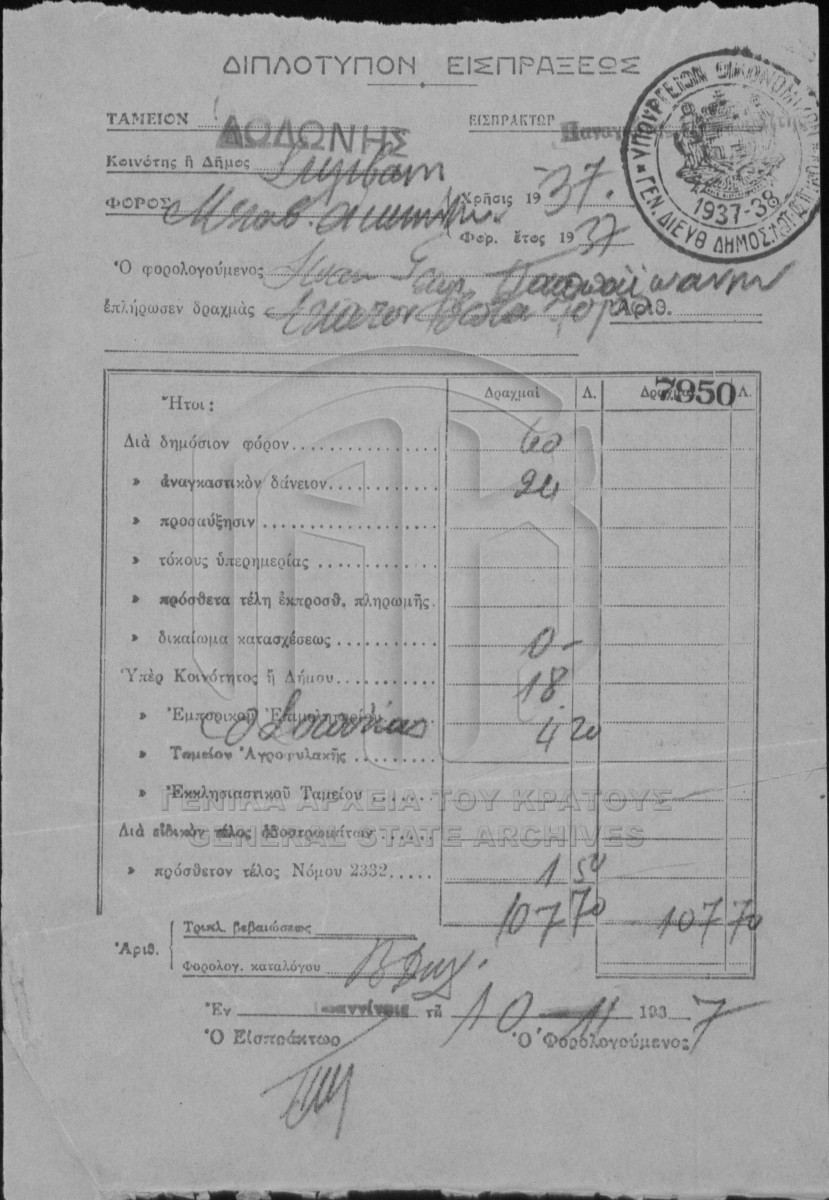 ΔΙΠΛΟΤΥΠΟΝ ΕΙΣΠΡΑΞΕΩΣ
ΤΑΜΕΙΟΝ ΔΩΔΩΝΗΣ ΕΙΣΠΡΑΚΤΩΡ
ΥΠΟΥΡΓΕΙΟΝ ΟΙΚΟΝΟΜΙΚΩΝ
ΓΕΝ. ΔΙΕΥΘ ΔΗΜΟΣ.
1937-38
Κοινότης ἢ Δῆμος
ΦΟΡΟΣ Χρῆσις 1937.
Φορ. ἔτος 1937
Ὁ φορολογούμενος Παππαϊωάννην
ἐπλήρωσεν δραχμὰς Ἑκατὸν ἑπτὰ 70/ Ἀριθ.
Ἤτοι: Δραχμαὶ Λ. Δραχμαὶ 7950 Λ.
Διὰ δημόσιον φόρον 60
» ἀναγκαστικὸν δάνειον 24
» προσαύξησιν
» τόκους ὑπερημερίας
» πρόσθετα τέλη ἐκπροσθ. πληρωμῆς.
» δικαίωμα κατασχέσεως 0-
Ὑπὲρ Κοινότητος ἢ Δήμου 18
» Ἐμπορικοῦ Ἐπιμελητηρίου 4 20
» Ταμείου Ἀγροφυλακῆς
» Ἐκκλησιαστικοῦ Ταμείου
ΓΕΝΙΚΑ ΑΡΧΕΙΑ ΤΟΥ ΚΡΑΤΟΥΣ
GENERAL STATE ARCHIVES
Διὰ εἰδικὸν τέλος ὁδοστρωμάτων
» πρόσθετον τέλος Νόμου 2332 1 50
107 70 107 70
Ἀριθ. Τριπλ. βεβαιώσεως
Φορολογ. καταλόγου
Ἐν τῇ 10-11 1937
Ὁ Εἰσπράκτωρ Ὁ Φορολογούμενος